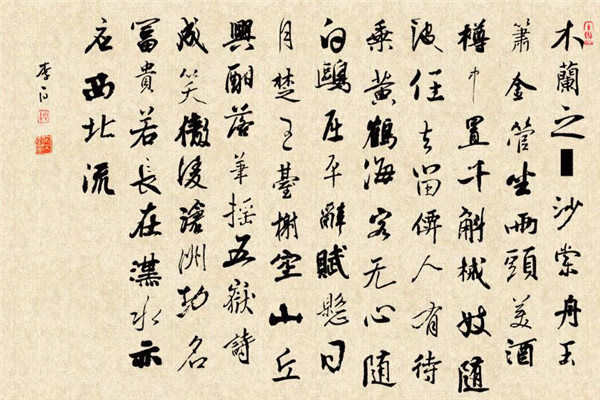 木蘭之▮沙棠舟玉
簫金管坐兩頭美酒
樽中置千斛械妓隨
波任去留僊人有待
乘黄鶴海客无心隨
白鷗屈平辭賦懸日
月楚王臺榭空山丘
興酣落筆摇五嶽詩
成笑傲凌滄洲功名
冨貴若長在漢水亦
应西北流
李白